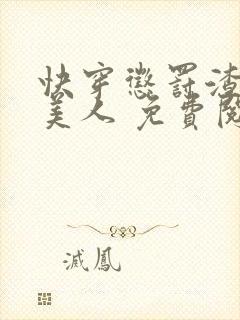 快穿懲罰渣
美人 免費閱
滅鳳